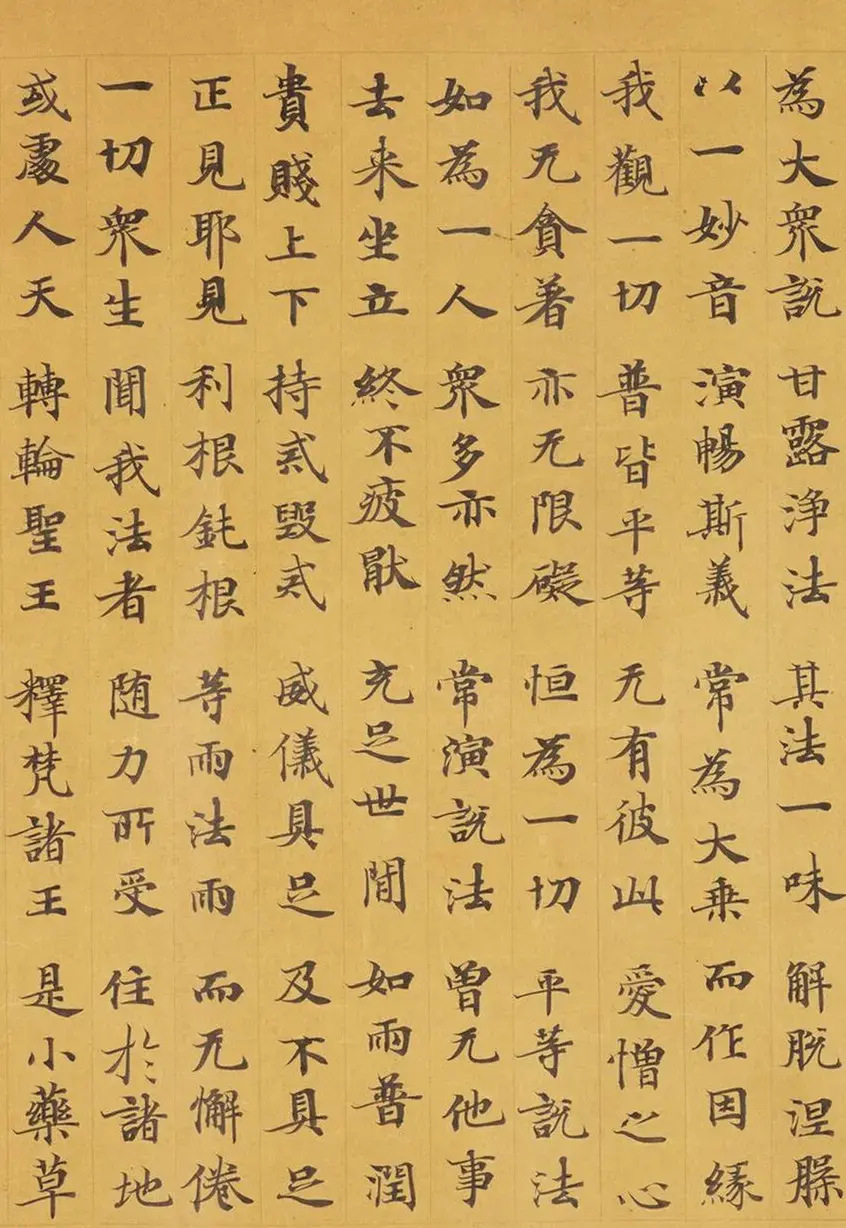 為大衆說 甘露浄法 其法一味 解脫涅槃
以一妙音 演暢斯義 常為大乗 而作因緣
我觀一切 普皆平等 无有彼此 愛憎之心
我无貪著 亦无限礙 恒為一切 平等說法
如為一人 衆多亦然 常演說法 曾无他事
去来坐立 終不疲猒 充足世間 如雨普潤
貴賤上下 持戒毀戒 威儀具足 及不具足
正見耶見 利根鈍根 等雨法雨 而无懈倦
一切衆生 聞我法者 随力所受 住於諸地
或處人天 轉輪聖王 釋梵諸王 是小藥草